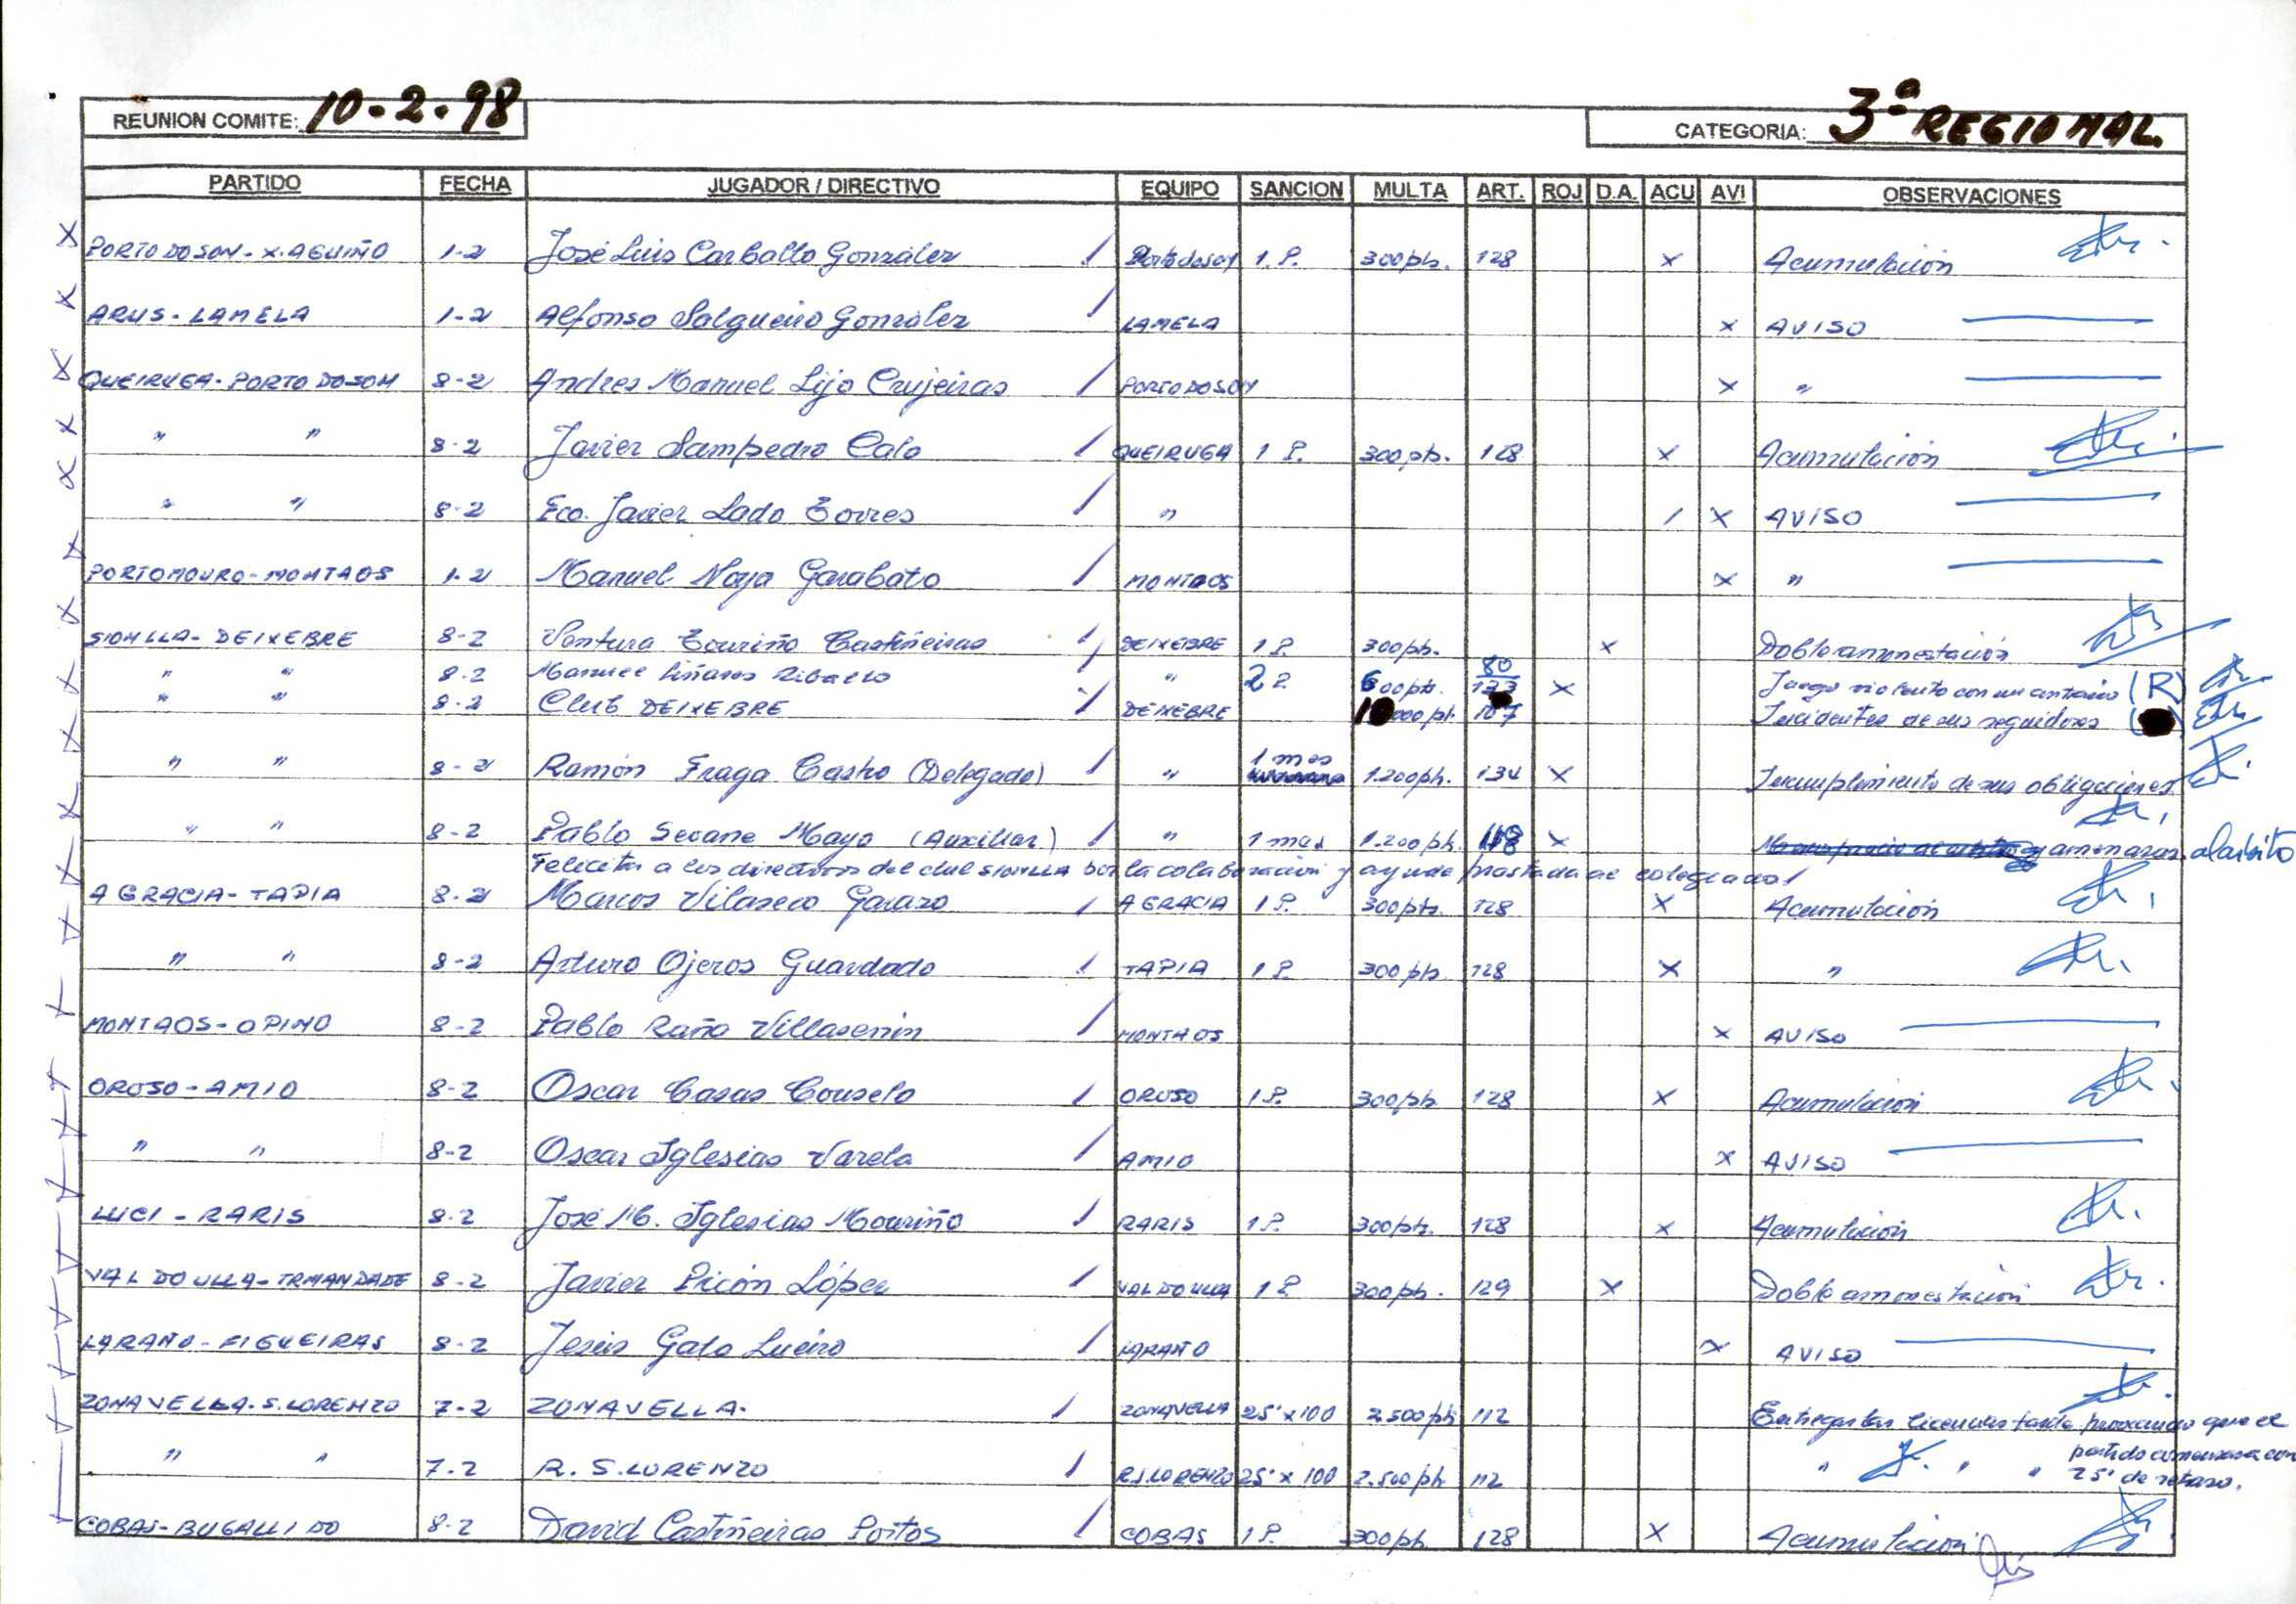 REUNION COMITE: 10-2-98 CATEGORIA: 3ª REGIONAL
PARTIDO FECHA JUGADOR / DIRECTIVO EQUIPO SANCION MULTA ART. ROJ D.A. ACU AVI OBSERVACIONES
PORTO DO SON - X. AGUIÑO 1-2 José Luis Carballo González Porto do son 1 P. 300 pts. 128 X Acumulación
ARUS - LAMELA 1-2 Alfonso Salgueiro González LAMELA X AVISO
QUEIRUGA - PORTO DO SON 8-2 Andres Manuel Lijo Crujeiras PORTO DO SON X "
" " 8-2 Javier Sampedro Calo QUEIRUGA 1 P. 300 pts. 128 X Acumulación
" " 8-2 Fco. Javier Lado Torres " / X AVISO
PORTOMOURO - MONTAOS 1-2 Manuel Noya Garabato MONTAOS X "
SIONLLA - DEIXEBRE 8-2 Ventura Touriño Castiñeiras DEIXEBRE 1 P. 300 pts. X Doble amonestación
" " 8-2 Manuel Liñares Riballo " 2 P. 600 pts. 80 123 X Juego violento con un contrario (R)
" " 8-2 Club DEIXEBRE DEIXEBRE 107 Incidentes de sus seguidores
" " 8-2 Ramón Fraga Castro (Delegado) " 1 mes 1.200 pts. 134 X Incumplimiento de sus obligaciones
" " 8-2 Pablo Seoane Mayo (Auxiliar) " 1 mes 1.200 pts. 118 X amenazas al arbitro
Felicitar a los directivos del club SIONLLA por la colaboración y ayuda prestada al colegiado
A GRACIA - TAPIA 8-2 Marcos Vilaseco Garazo A GRACIA 1 P. 300 pts. 128 X Acumulación
" " 8-2 Arturo Ojeros Guardado TAPIA 1 P. 300 pts 128 X "
MONTAOS - OPINO 8-2 Pablo Raña Villasenin MONTAOS X AVISO
OROSO - AMIO 8-2 Oscar Casas Couselo OROSO 1 P. 300 pts 128 X Acumulación
" " 8-2 Oscar Iglesias Varela AMIO X AVISO
LUCI - RARIS 8-2 José M. Iglesias Mouriño RARIS 1 P. 300 pts. 128 X Acumulación
VAL DO ULLA - IRMANDADE 8-2 Javier Picón López VAL DO ULLA 1 P. 300 pts. 129 X Doble amonestación
LARAÑO - FIGUEIRAS 8-2 Jesús Gato Lueiro LARAÑO X AVISO
ZONA VELLA - S. LORENZO 7-2 ZONA VELLA. ZONAVELLA 25' x 100 2.500 pts 112 Entregar las licencias tarde provocando que el
partido comenzara con
" " 7-2 R. S. LORENZO R. S. LORENZO 25' x 100 2.500 pts 112 " " "
25' de retraso.
COBAS - BUGALLIDO 8-2 David Castiñeiras Portos COBAS 1 P. 300 pts 128 X Acumulación